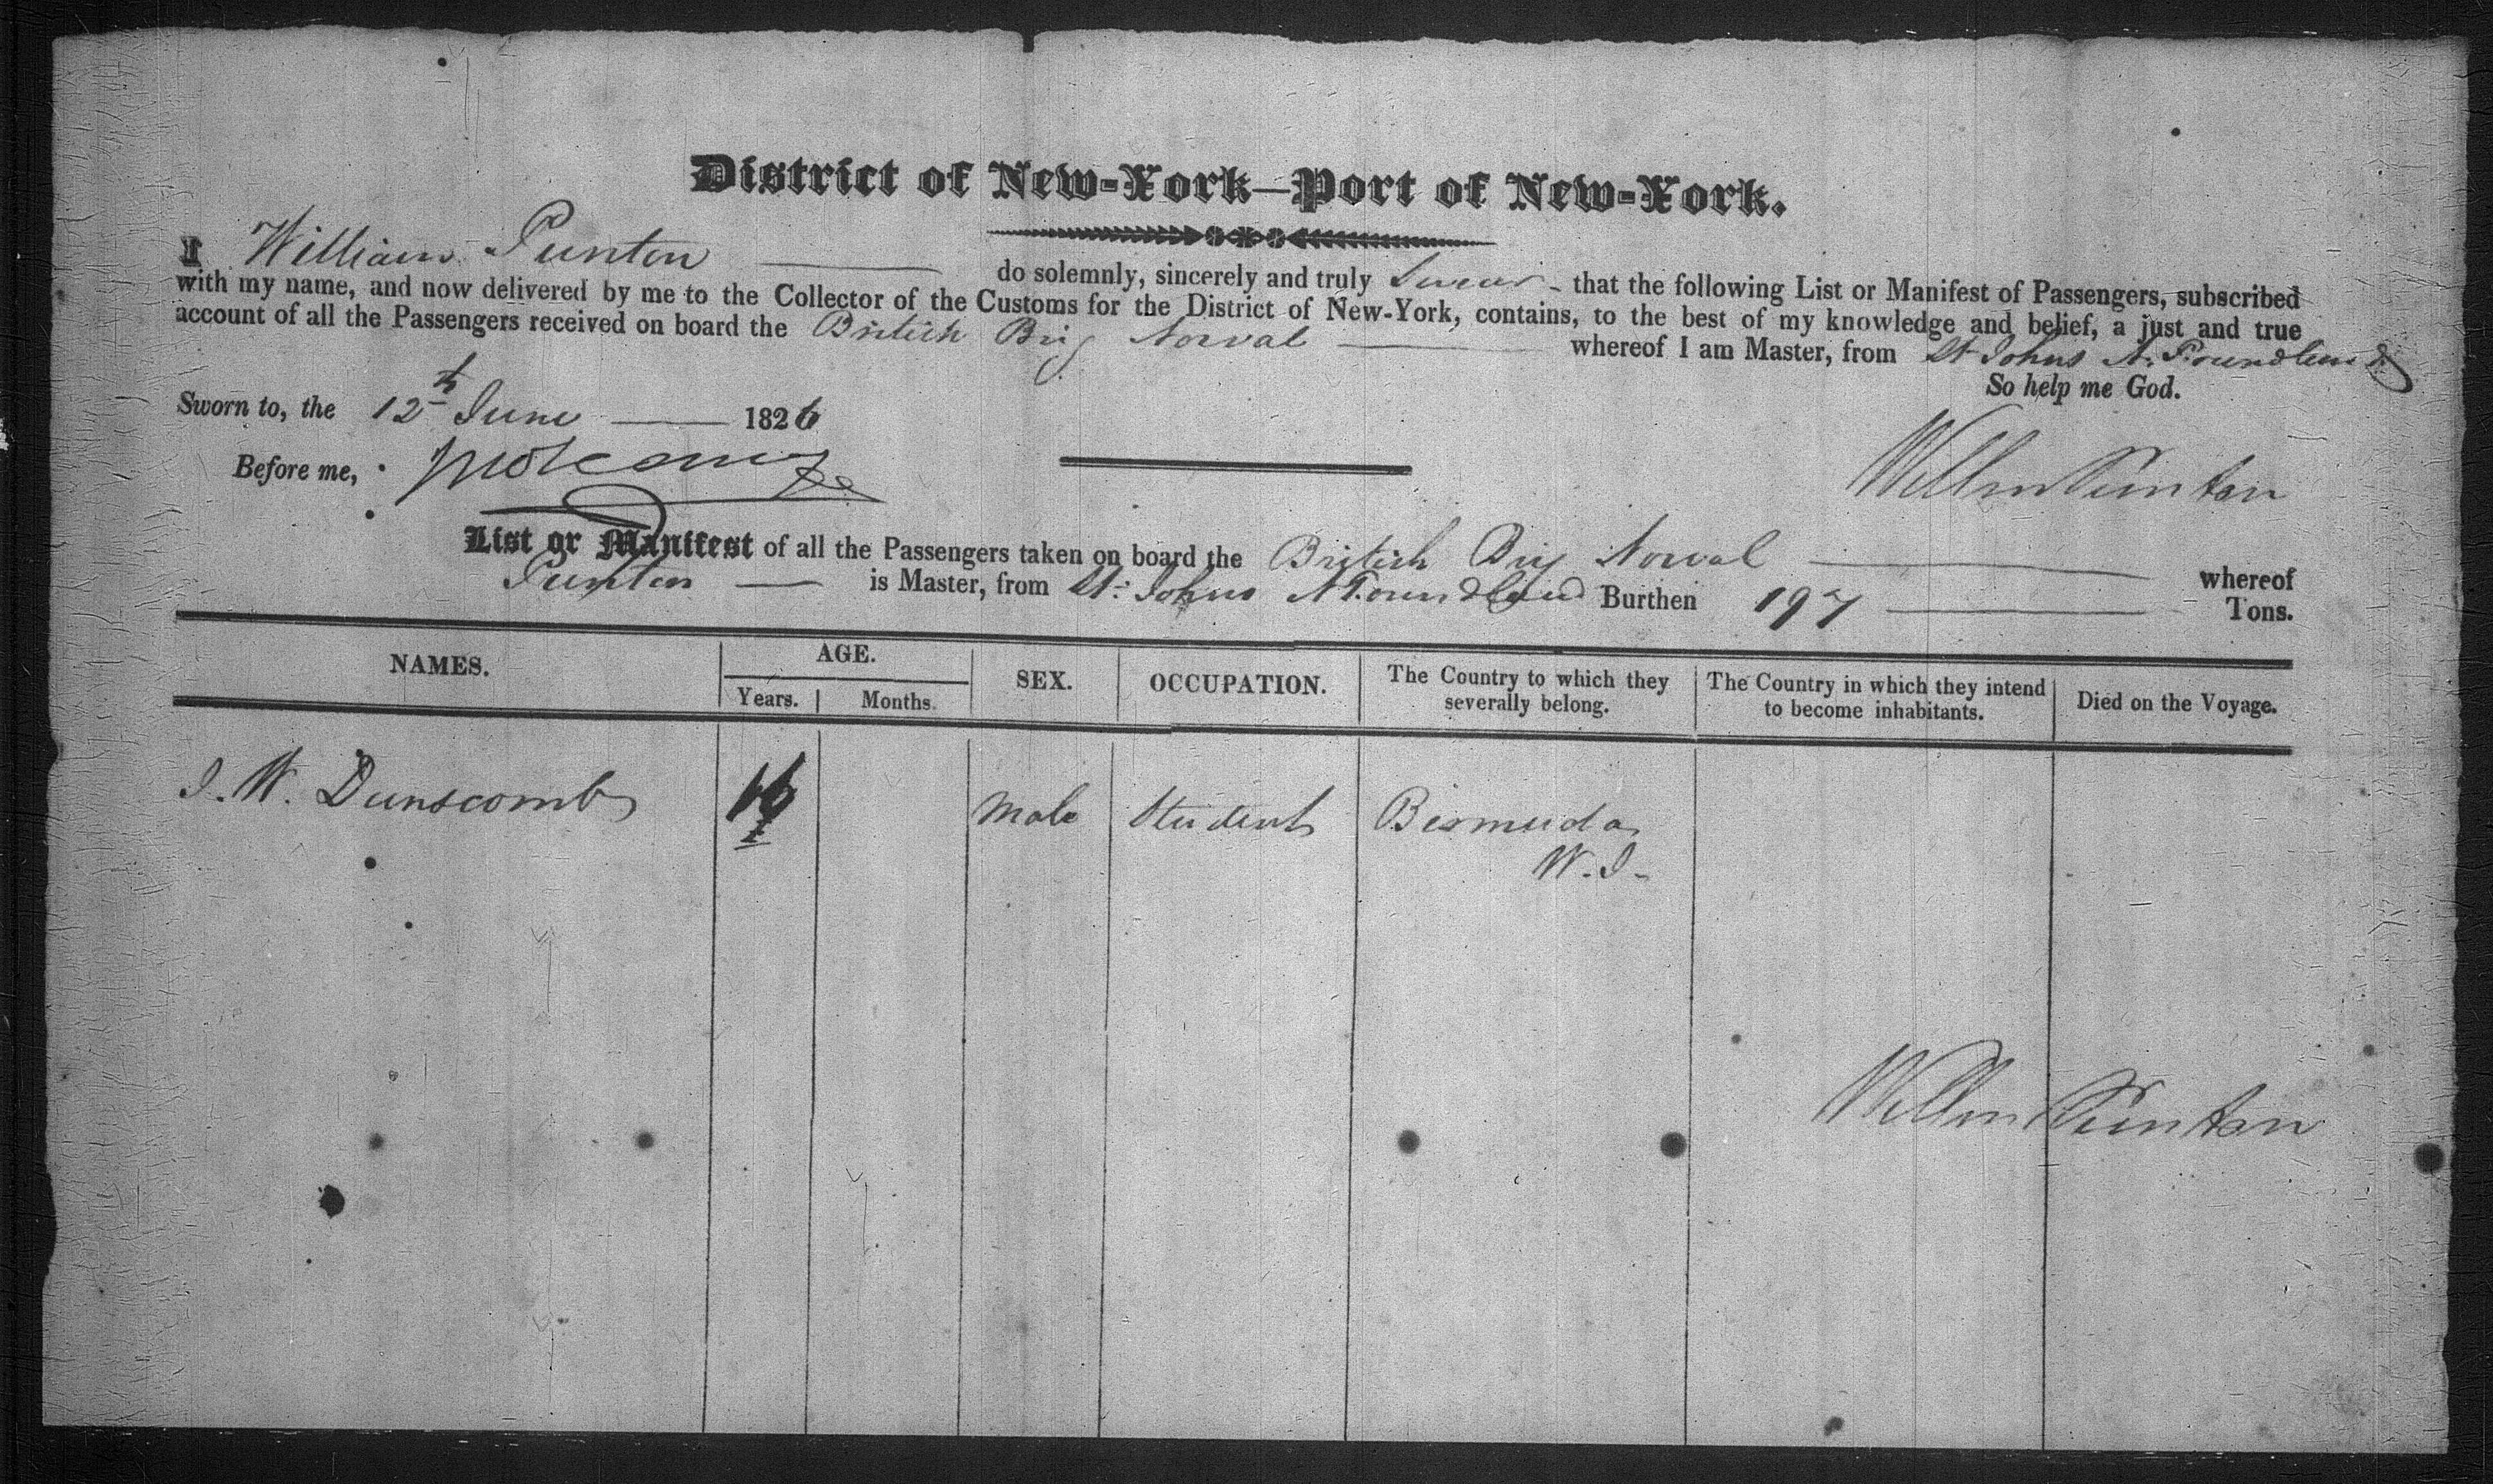 District of New-York—Port of New-York.
I William Punton do solemnly, sincerely and truly Swear - that the following List or Manifest of Passengers, subscribed
with my name, and now delivered by me to the Collector of the Customs for the District of New-York, contains, to the best of my knowledge and belief, a just and true
account of all the Passengers received on board the British Brig Norval whereof I am Master, from St Johns N. Foundland
So help me God.
Sworn to, the 12th June 1826
Before me,
Willm Punton
List or Manifest of all the Passengers taken on board the British Brig Norval whereof
Punton is Master, from St. Johns N Foundland Burthen 197 Tons.
NAMES. AGE. SEX. OCCUPATION. The Country to which they severally belong. The Country in which they intend to become inhabitants. Died on the Voyage.
Years. Months.
J. W. Dunscomb 16 Male Student Bermuda
1
W. I-
Willm Punton